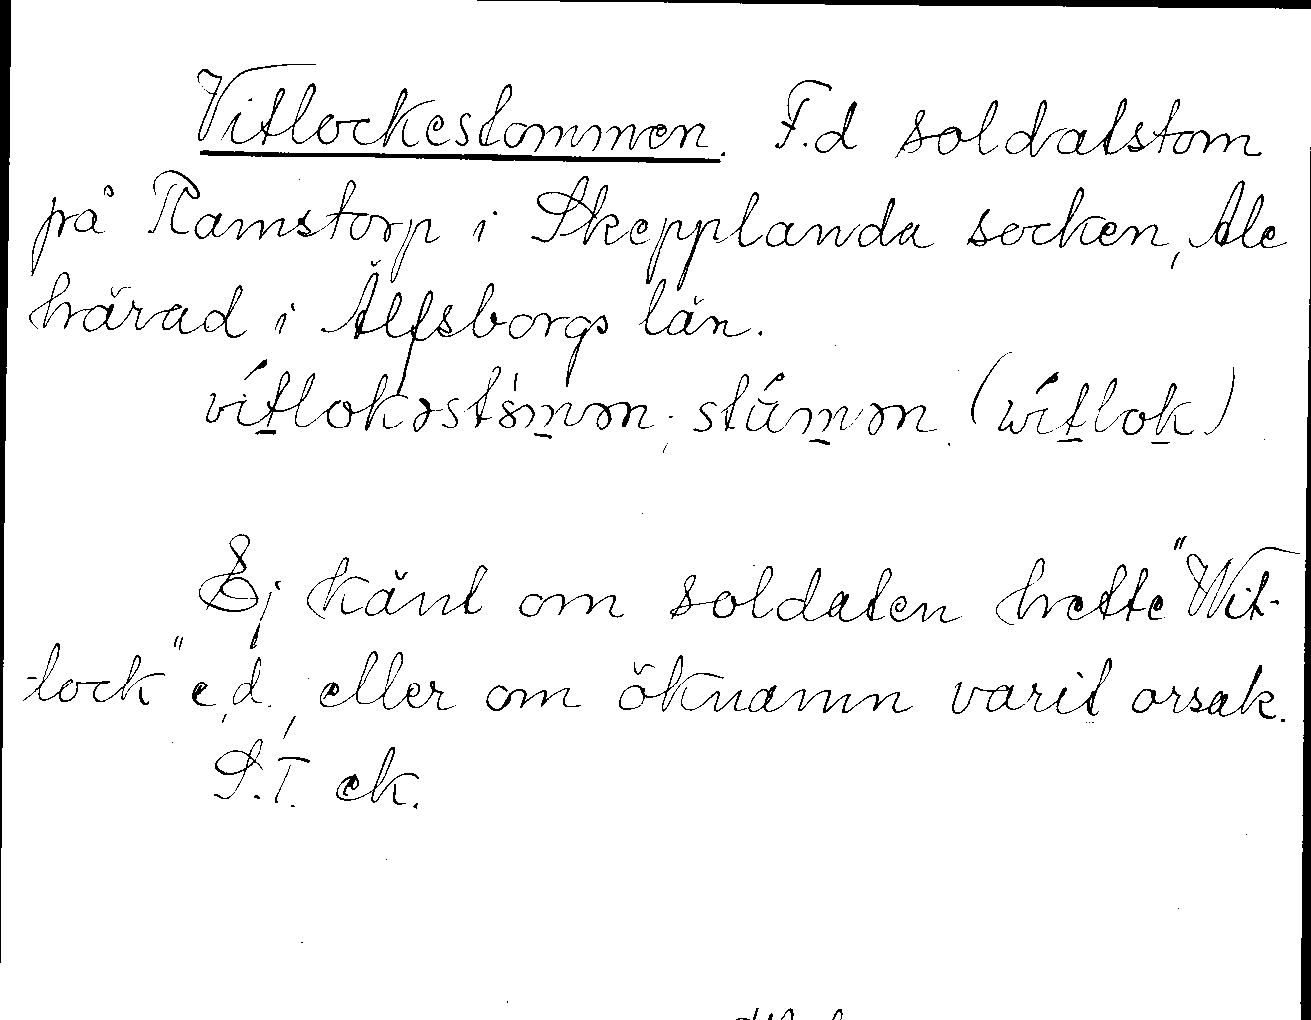 Vitlockestommen. F.d soldatstom
på Ramstorp i Skepplanda socken, Ale
härad i Älfsborgs län.
vítlokəstò̀mən; stúmən. (wítlok)
Ej känt om soldaten hette "Wit-
-lock" e.d., eller om öknamn varit orsak.
S.T. ek.